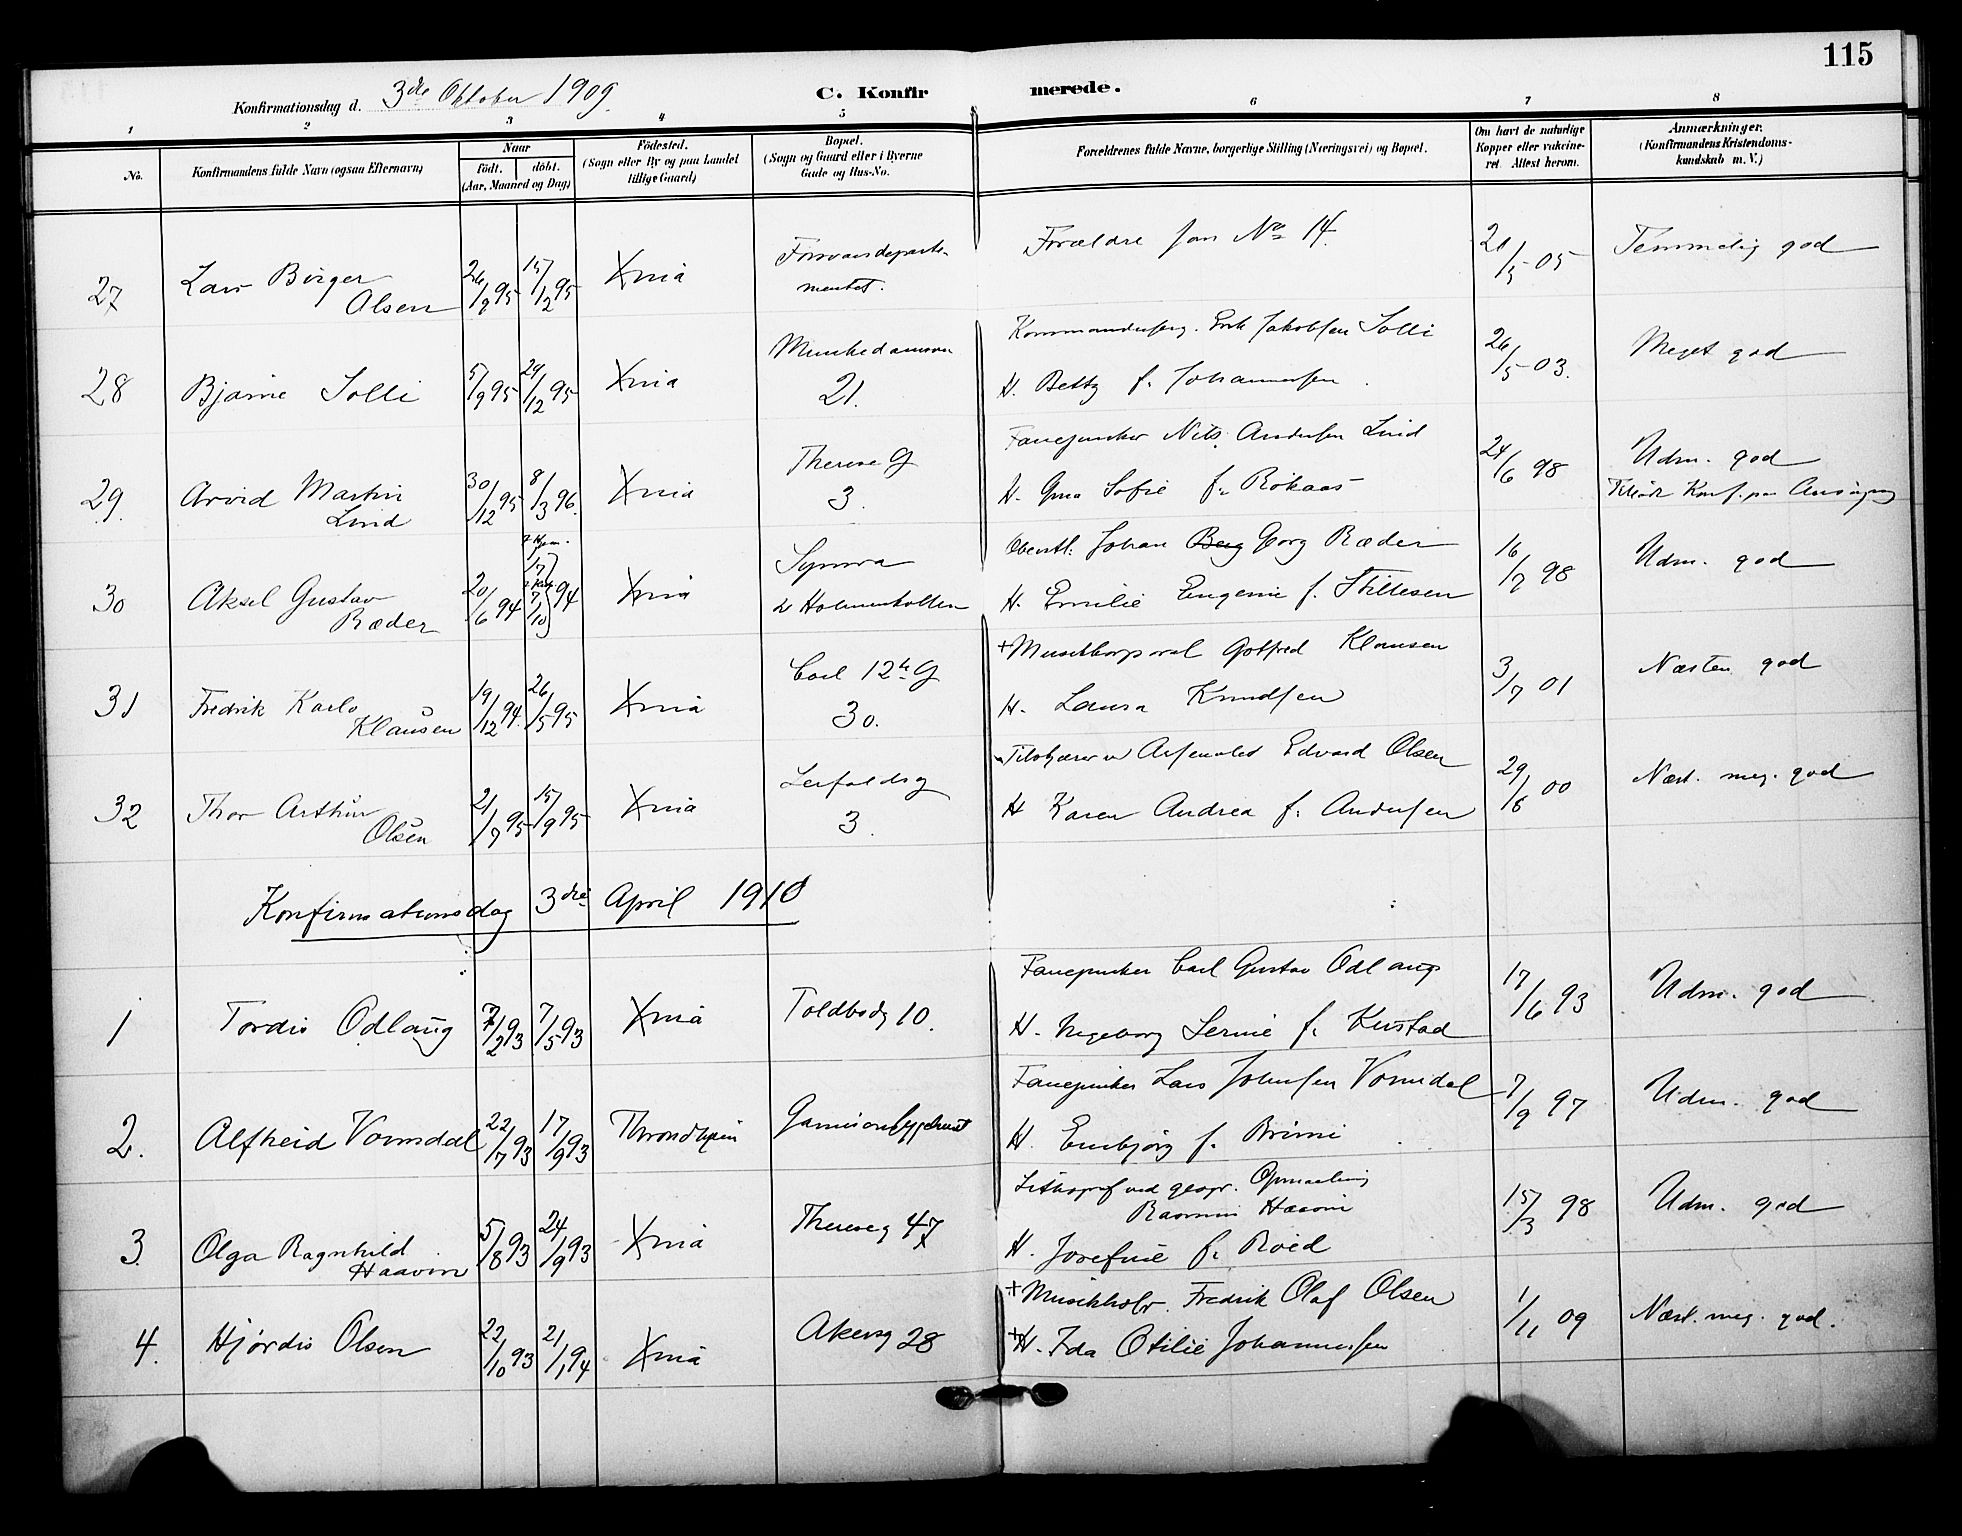 115
Konfirmationsdag d. 3die Oktober 1909.
C. Konfirmerede.
1 2 3 4 5 6 7 8
No.
Konfirmandens fulde Navn (ogsaa Efternavn)
Naar
födt. döbt.
(Aar, Maaned og Dag)
Födested.
(Sogn eller By og paa Landet
tillige Gaard)
Bopæl.
(Sogn og Gaard eller i Byerne
Gade og Hus-No.
Forældrenes fulde Navne, borgerlige Stilling (Næringsvei) og Bopæl.
Om havt de naturlige
Kopper eller vakcine-
ret. Attest herom.
Anmærkninger.
(Konfirmandens Kristendoms-
kundskab m. V.)
27 Lars Birger Olsen 26/9 95 15/12 95 Xnia Forsvarsdeparte-
mentet.
Forældre som No 14. 20/5 05 Temmelig god
28 Bjarne Solli 5/9 95 29/12 95 Xnia Munkedamsvn
21.
Erik Jakobsen Solli
H. Betty f. Johannesen 26/5 03. Meget god
29. Arvid Martin Lind 30/12 95 8/3 96. Xnia Therese G
3.
Fanejunker Nils Andersen Lind
H. Gina Sofie f. Rökaas 24/6 98 Udm. god
Tilstedt Konf. paa Ansögning
30 Aksel Gustav Ræder 20/6 94 17/7 7/10 94 Xnia Symra
v Holmenkollen
Oberstl. Johan Berg Georg Ræder
H. Emilie Eugenie f. Stillesen 16/7 98 Udm. god
31 Fredrik Karlo Klausen 19/12 94. 26/5 95 Xnia Carl 12te G
30.
+ Musikkorporal Gotfred Klausen
H. Laura Knudsen 3/7 01 Næsten god
32 Thor Arthur Olsen 21/7 95 15/9 95 Xnia Leifaldsg
3.
Arsenalet Edvard Olsen
H Karen Andrea f. Andersen 29/6 00 Næst. meg. god
Konfirmationsdag 3die April 1910
1 Tordis Odlaug 7/2 93 7/5 93 Xnia Toldbodg 10.
Fanejunker Carl Gustav Odlaug
H. Ingeborg Lernie f. Kustad 17/6 93 Udm. god
2. Alfheid Vornsdal 22/7 93 17/9 93 Throndhjem Garnisonssygehuset
Fanejunker Lars Johnsen Vornsdal
H. Embjörg f. Brimi 7/9 97 Udm. god
3. Olga Ragnhild Haavin 5/8 93 24/9 93 Xnia Thereseg 47
Lithograf ved geogr. Opmaaling
Rasmus Haavin
H. Josefine f. Roed 15/3 98 Udm. god
4. Hjördis Olsen 22/10 93 21/1 94 Xnia Akersg 28
+ Musikkolv. Fredrik Olaf Olsen
+ H. Ida Otilie Johannessen 1/11 09 Næst. meg. god.